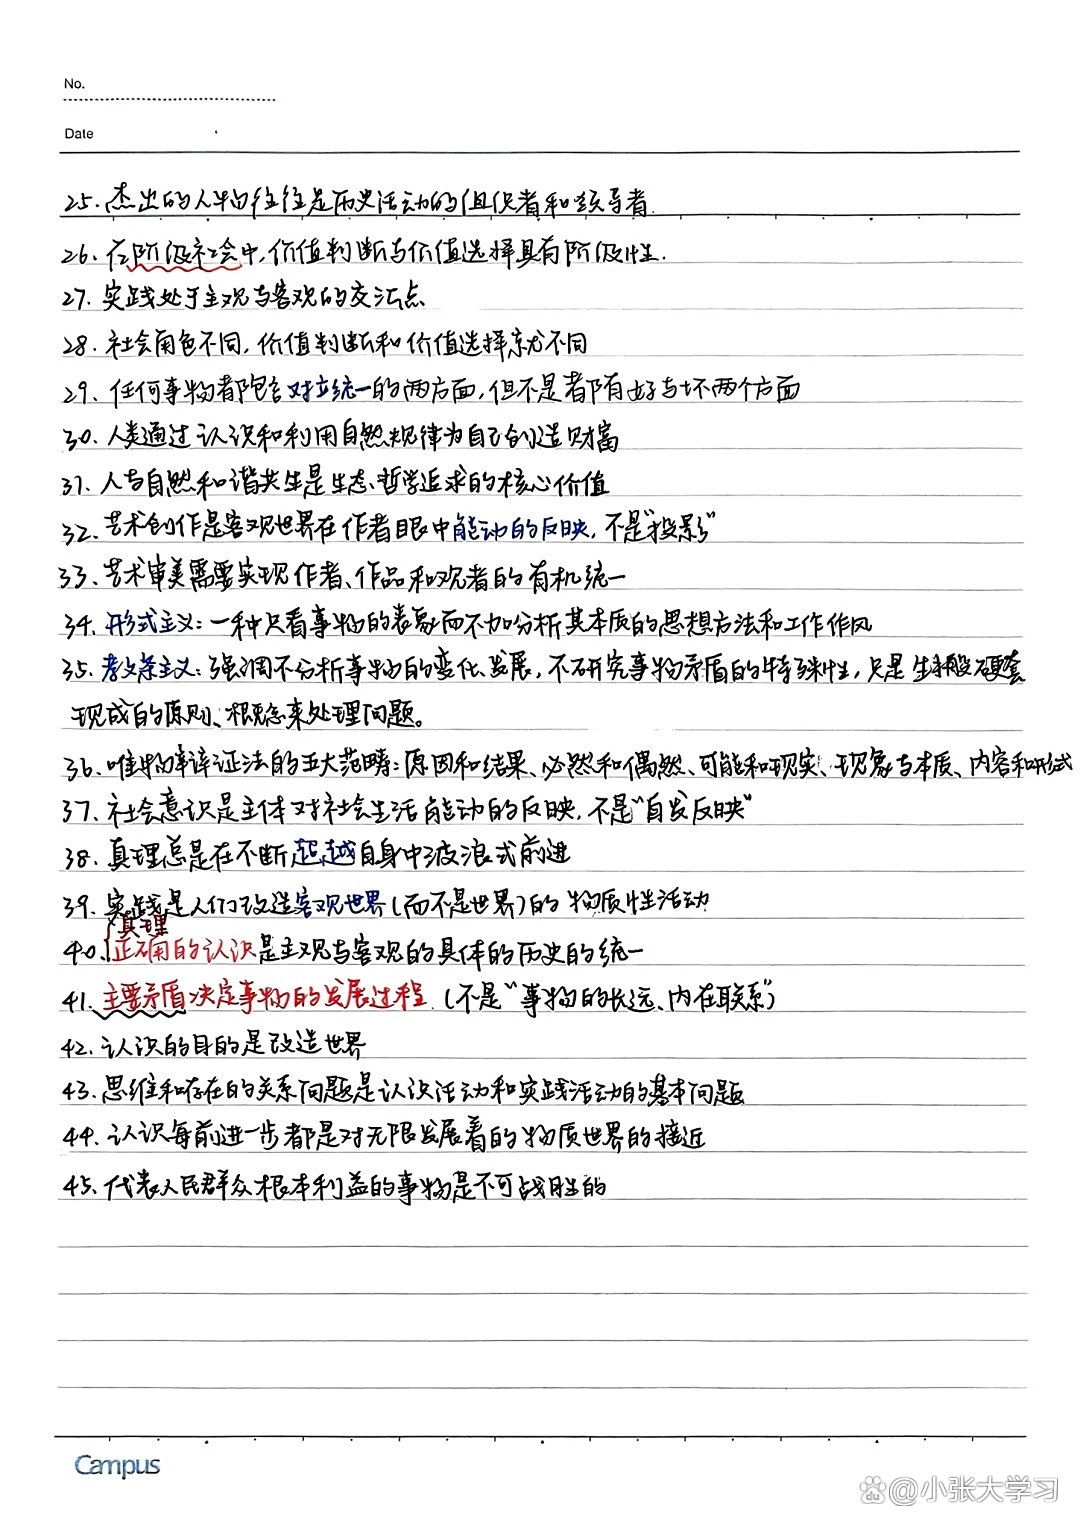 No.
Date
25. 杰出的人物往往是历史活动的组织者和领导者.
26. 在阶级社会中, 价值判断与价值选择具有阶级性.
27. 实践处于主观与客观的交汇点
28. 社会角色不同, 价值判断和价值选择就不同
29. 任何事物都包含对立统一的两方面, 但不是都有好与坏两个方面
30. 人类通过认识和利用自然规律为自己创造财富
31. 人与自然和谐共生是生态哲学追求的核心价值
32. 艺术创作是客观世界在作者眼中能动的反映, 不是“投影”
33. 艺术审美需要实现作者、作品和观者的有机统一
34. 形式主义: 一种只看事物的表象而不加分析其本质的思想方法和工作作风
35. 教条主义: 强调不分析事物的变化、发展, 不研究事物矛盾的特殊性, 只是生搬硬套
现成的原则、概念来处理问题。
36. 唯物辩证法的五大范畴: 原因和结果、必然和偶然、可能和现实、现象与本质、内容和形式
37. 社会意识是主体对社会生活能动的反映, 不是“自发反映”
38. 真理总是在不断超越自身中波浪式前进
39. 实践是人们改造客观世界(而不是世界)的物质性活动
真理
40. 正确的认识是主观与客观的具体的历史的统一
41. 主要矛盾决定事物的发展过程. (不是“事物的长远、内在联系”)
42. 认识的目的是改造世界
43. 思维和存在的关系问题是认识活动和实践活动的基本问题
44. 认识每前进一步都是对无限发展着的物质世界的接近
45. 代表人民群众根本利益的事物是不可战胜的
Campus
du @小张大学习